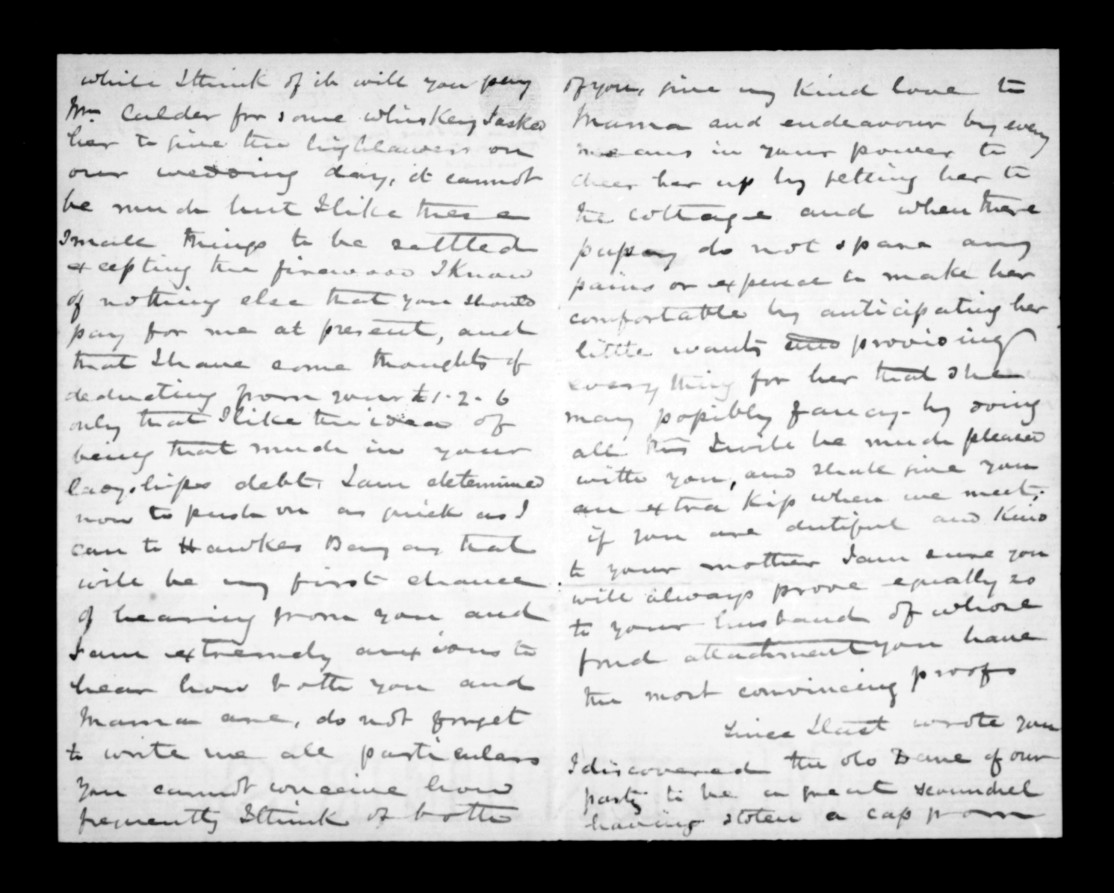 while I think of it will you pay
Mrs Calder for some whiskey I asked
her to give the highlanders on
our wedding day, it cannot
be much but I like these
small things to be settled
excepting the firewood I know
of nothing else that you should
pay for me at present, and
that I have some thoughts of
deducting from your £1-2-6
only that I like the idea of
being that much in your
ladyships debt. I am determined
now to push on as quick as I
can to Hawkes Bay as that
will be my first chance
of hearing from you and
I am extremely anxious to
hear how both you and
Mama are, do not forget
to write me all particulars
you cannot conceive how
frequently I think of both
of you, give my kind love to
Mama and endeavour by every
means in your power to
cheer her up by getting her to
the cottage and when there
do not spare any
pains or expence to make her
comfortable by anticipating her
little wants and providing
everything for her that she
may possibly fancy - by doing
all this I will be much pleased
with you, and shall give you
an extra kiss when we meet;
if you are dutiful and kind
to your mother I am sure you
will always prove equally so
to your husband of whose
fond attachment you have
the most convincing proofs
Since I last wrote you
I discovered the old Dane of our
party to be a great scoundrel
having stolen a cap from